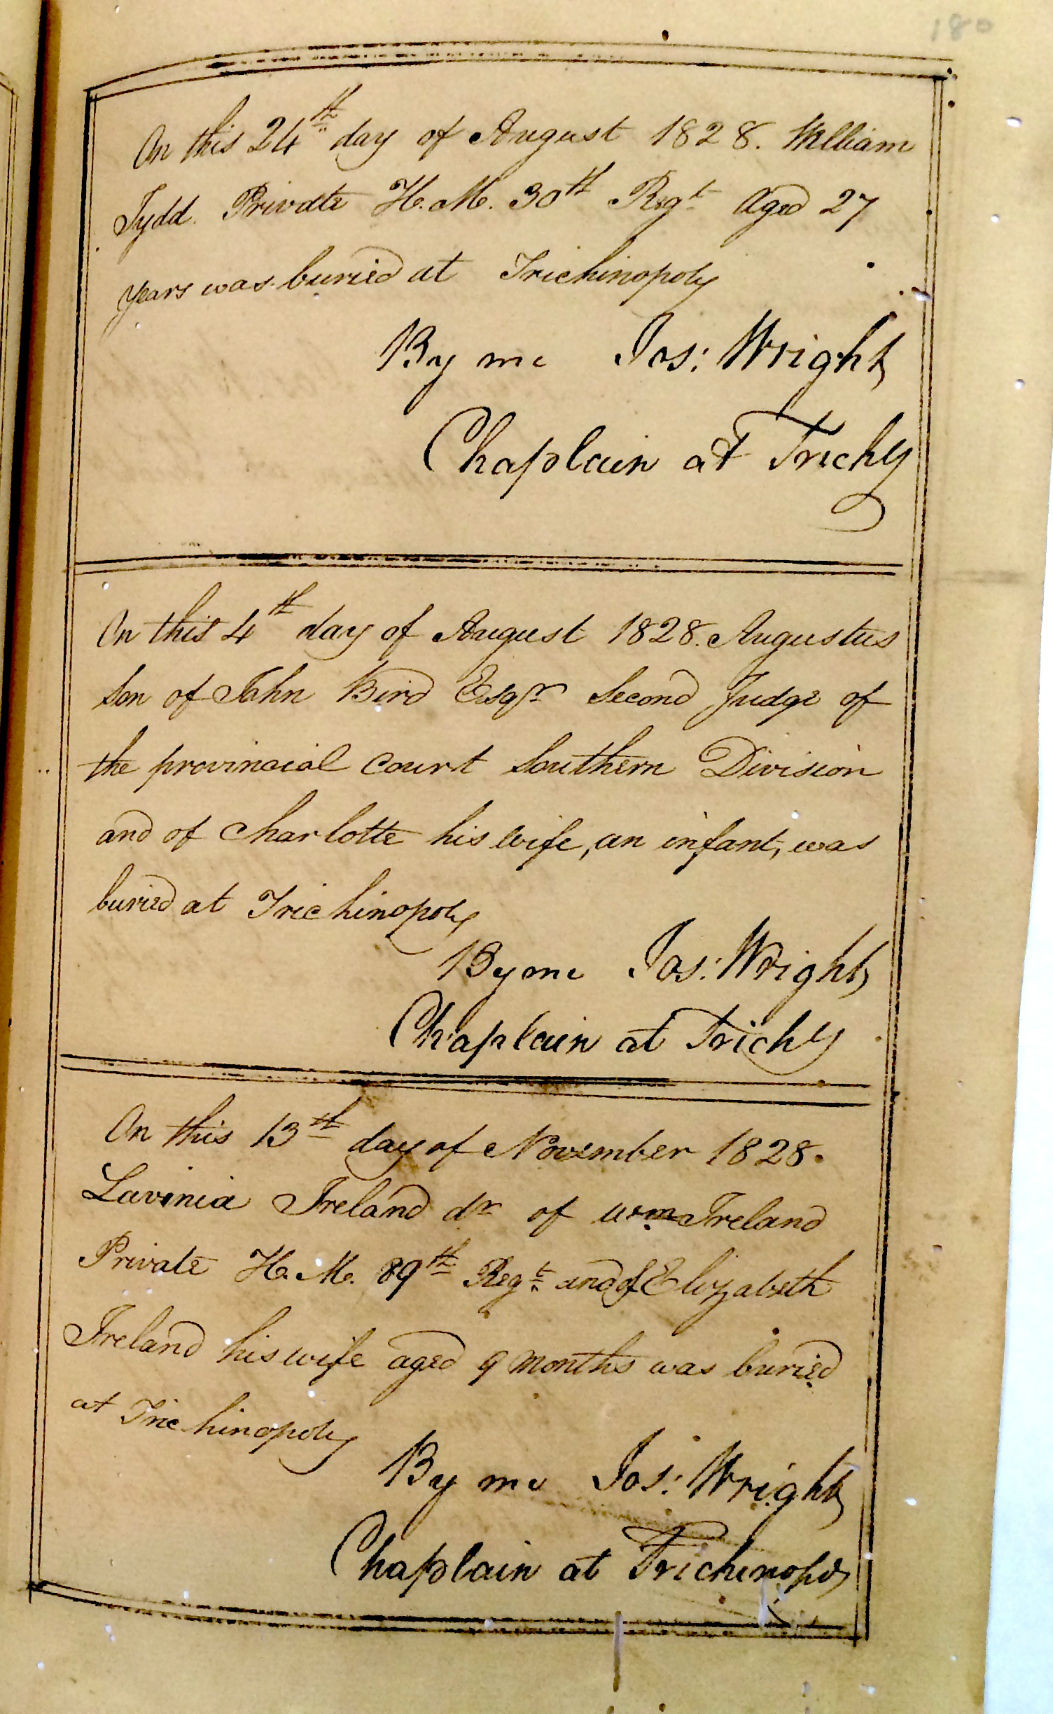 180
On this 24th day of August 1828. William
Tydd. Private H.M. 30th Regt Aged 27
years was buried at Trichinopoly
By me Jos: Wright
Chaplain at Trichy
On this 4th day of August 1828. Augustus
Son of John Bird Esqr Second Judge of
the provincial Court Southern Division
and of Charlotte his wife, an infant, was
buried at Trichinopoly
By me Jos: Wright
Chaplain at Trichy
On this 13th day of November 1828.
Lavinia Ireland dr of Wm Ireland
Private H.M. 89th Regt and of Elizabeth
Ireland his wife aged 9 months was buried
at Trichinopoly
By me Jos: Wright
Chaplain at Trichinopoly